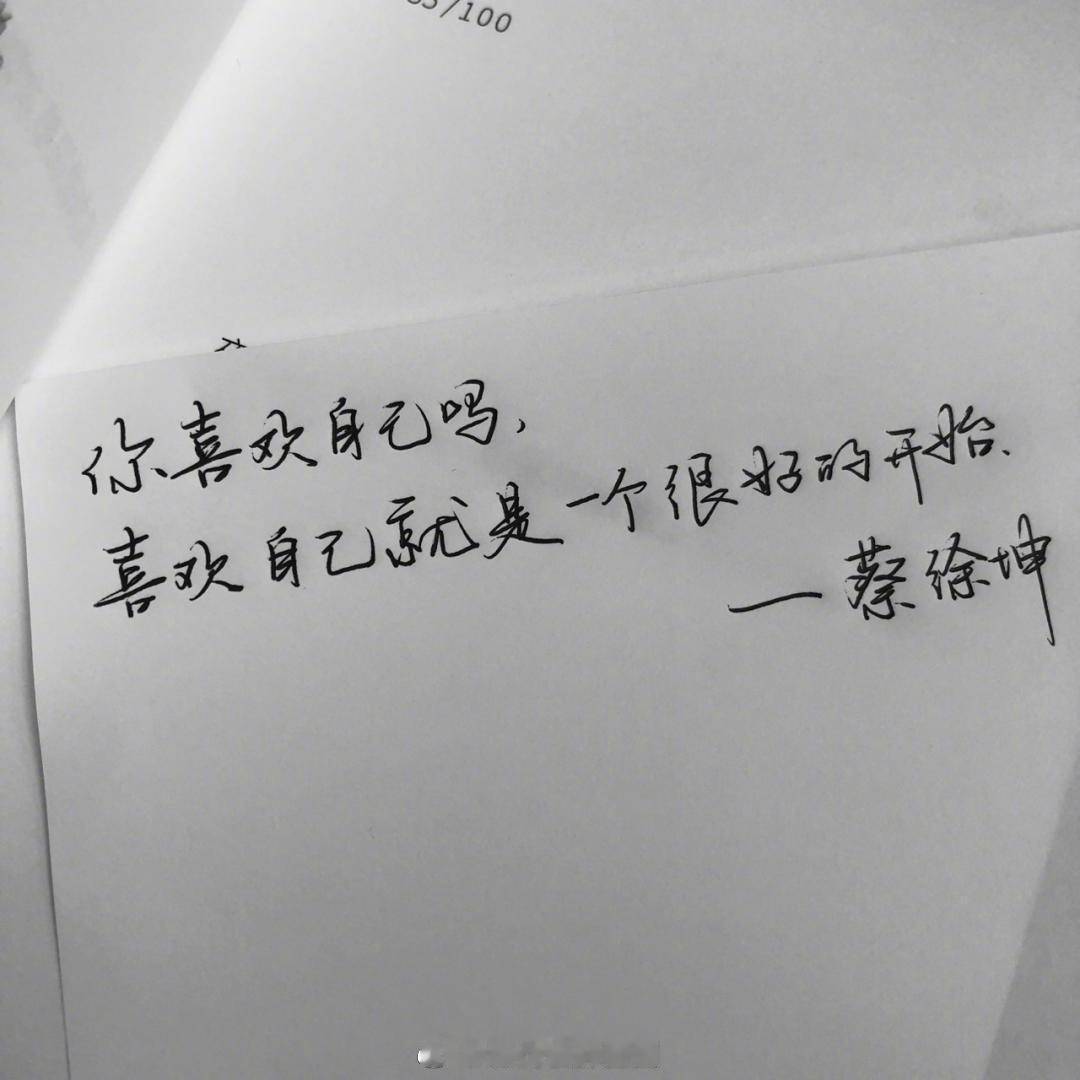 /100
你喜欢自己吗,
喜欢自己就是一个很好的开始、
— 蔡徐坤